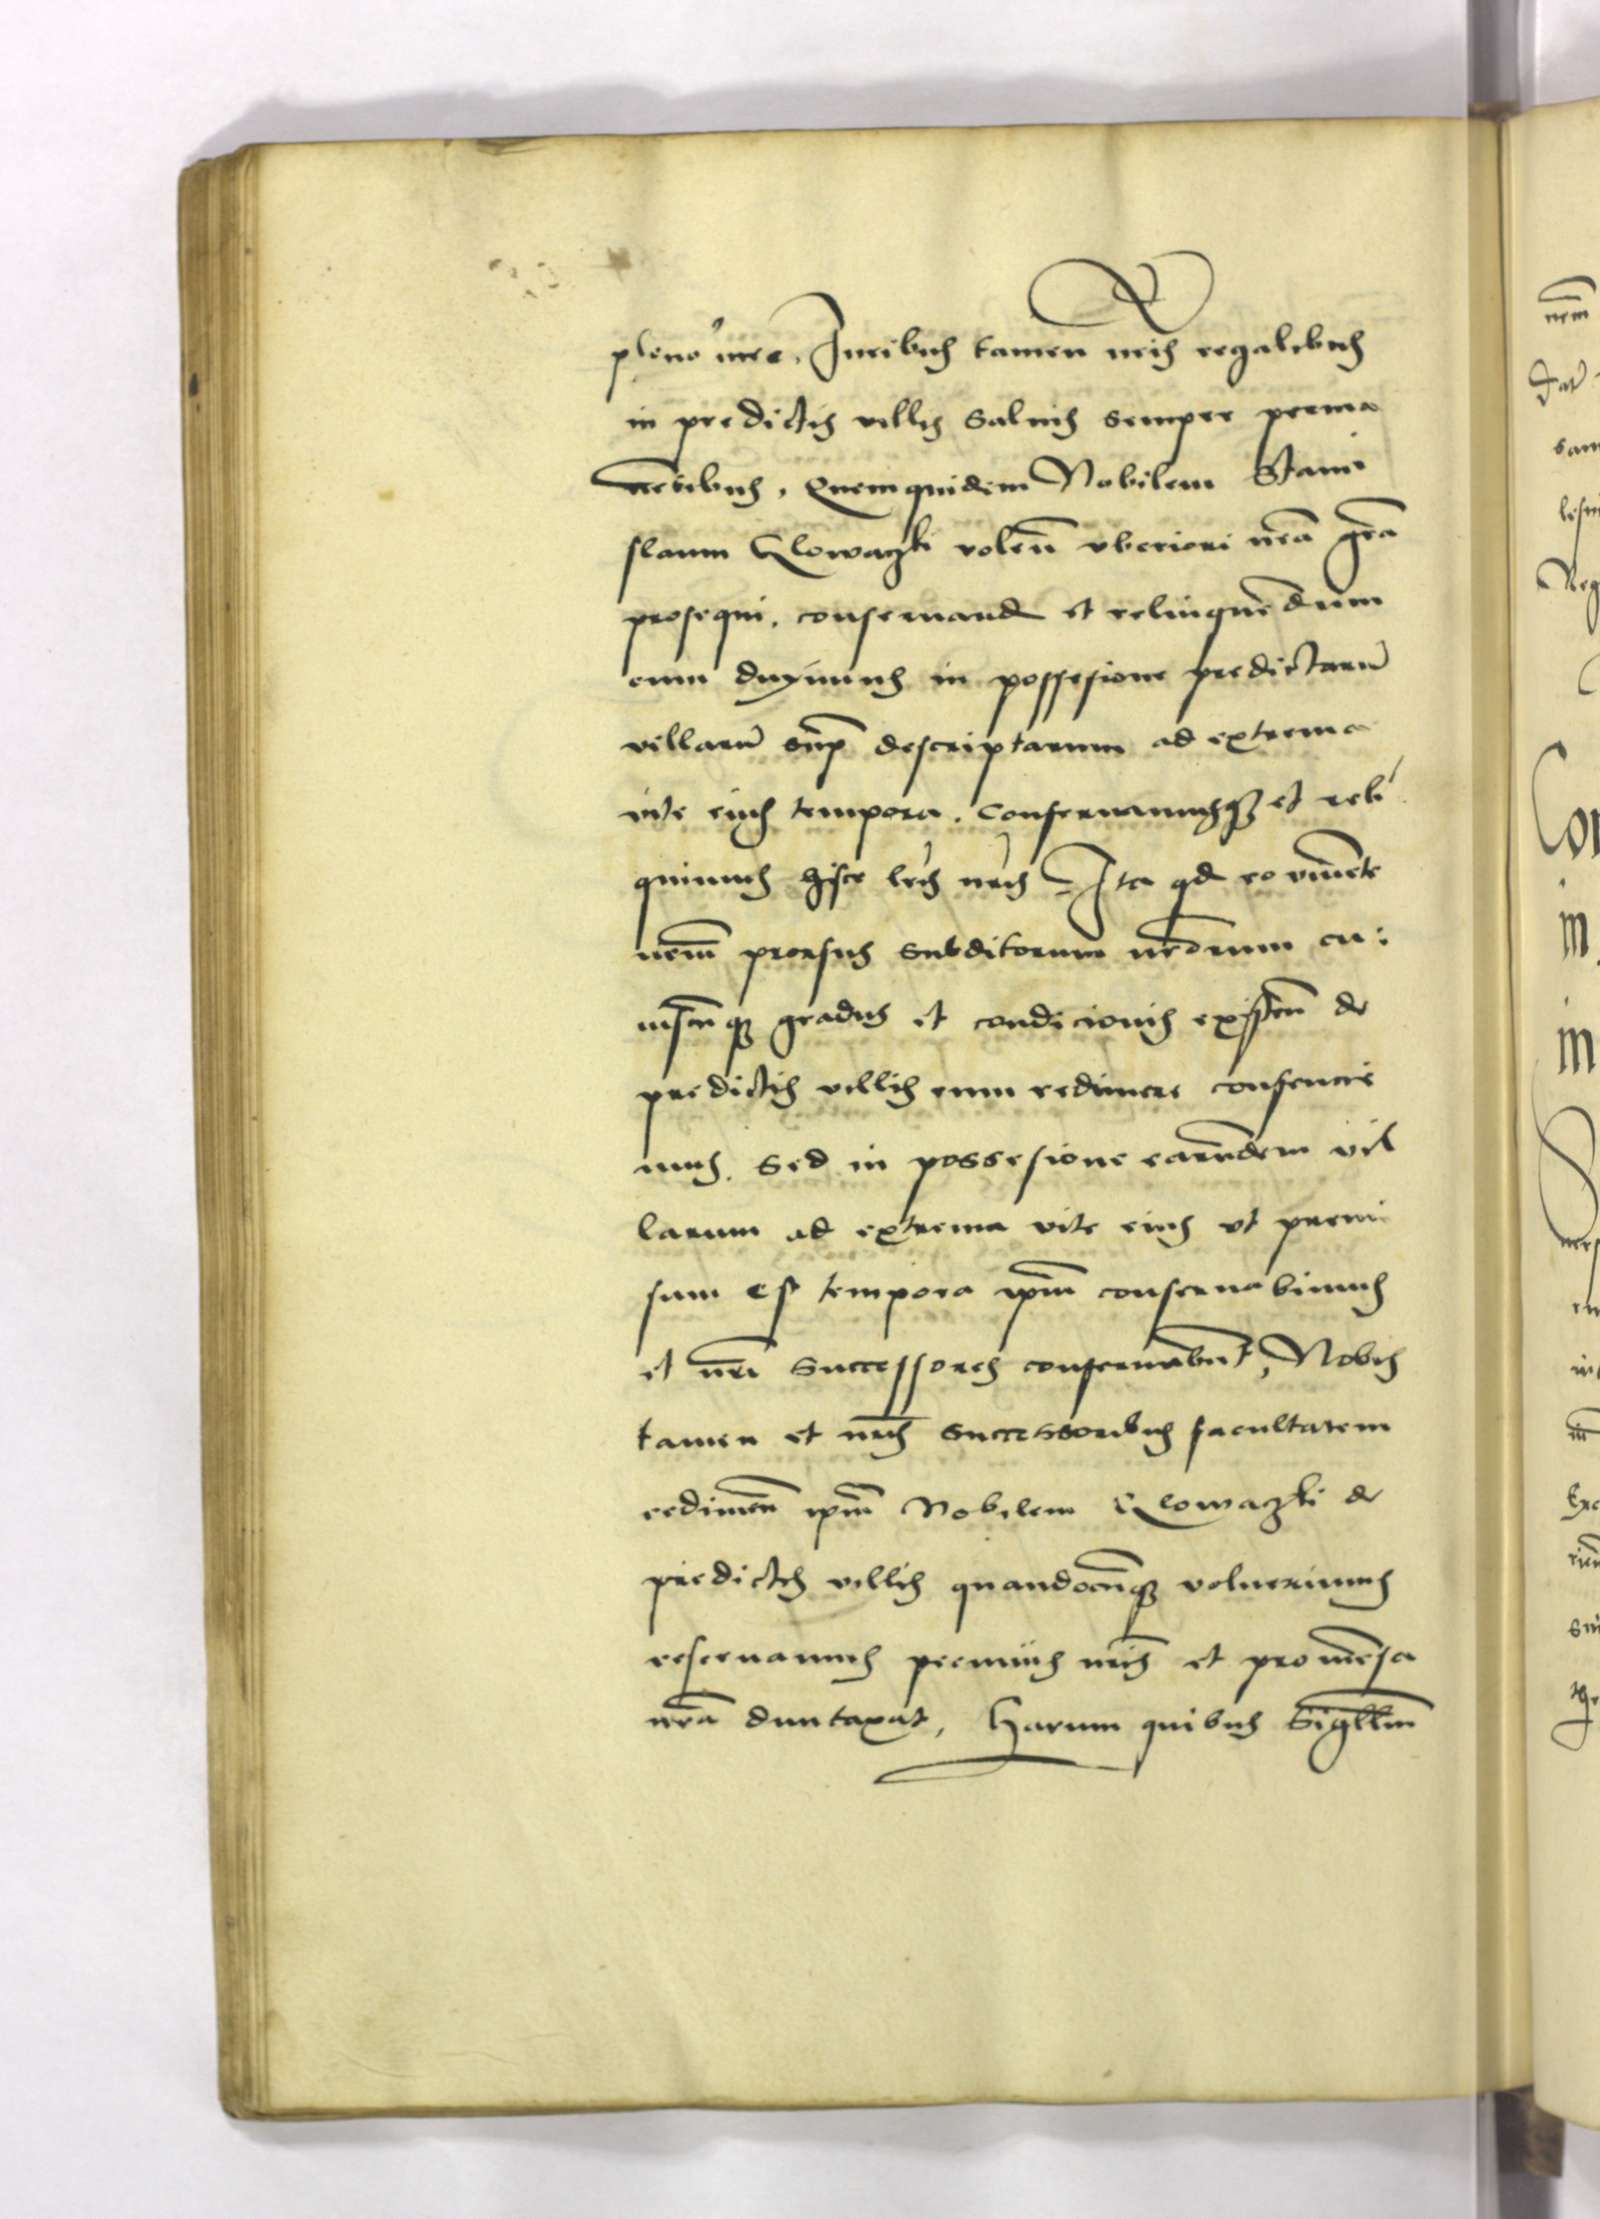 pleno iure, Iuribus tamen nris regalibus
in predictis villis saluis semper perma
nētibus, Quem quidem Nobilem Stani
slaum Glowaczki volen̄ vberiori nr̄a gr̄a
prosequi, conseruand et relinquēdum
eum duximus in possesione predictarū
villarū sup̄ descriptarum ad extrema
vite eius tempora. Conseruamusq3 et reli
quimus hisce lr̄is nr̄is Ita qd eo viuēte
nemī prorsus subditorum nr̄orum cu:
iuscūq3 gradus et condicionis existen̄ de
predictis villis eum redimere consencie
mus. Sed in possesione earūdem vil
larum ad extrema vite eius vt premi
sum est tempora ipm̄ conseruabimus
et nr̄i Successores conseruabūt, Nobis
tamen et nr̄is Successoribus facultatem
redimen̄ ipm̄ Nobilem Glowaczki de
predictis villis quandocūq3 voluerimus
reseruamus pecuniis nr̄is et pro mēsa
nr̄a duntaxat, Harum quibus Sigillm̄
nem
Dat